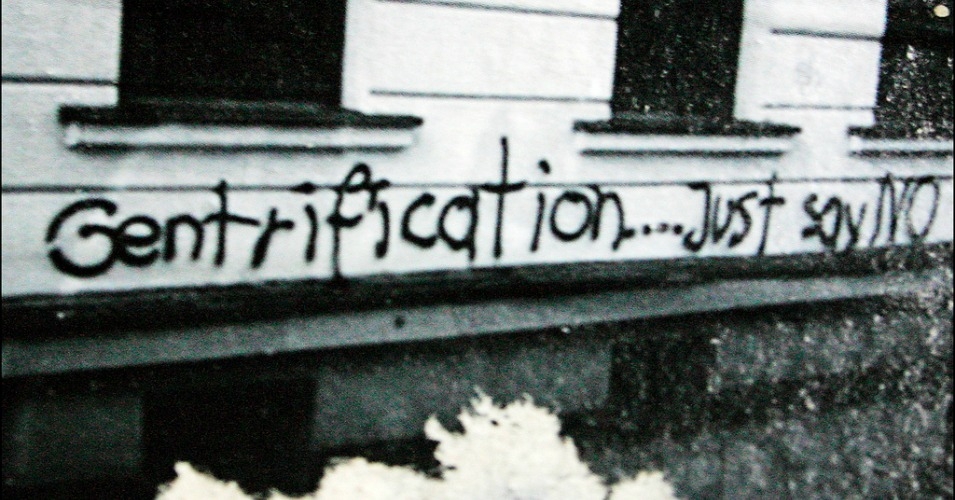 Gentrification....Just say NO